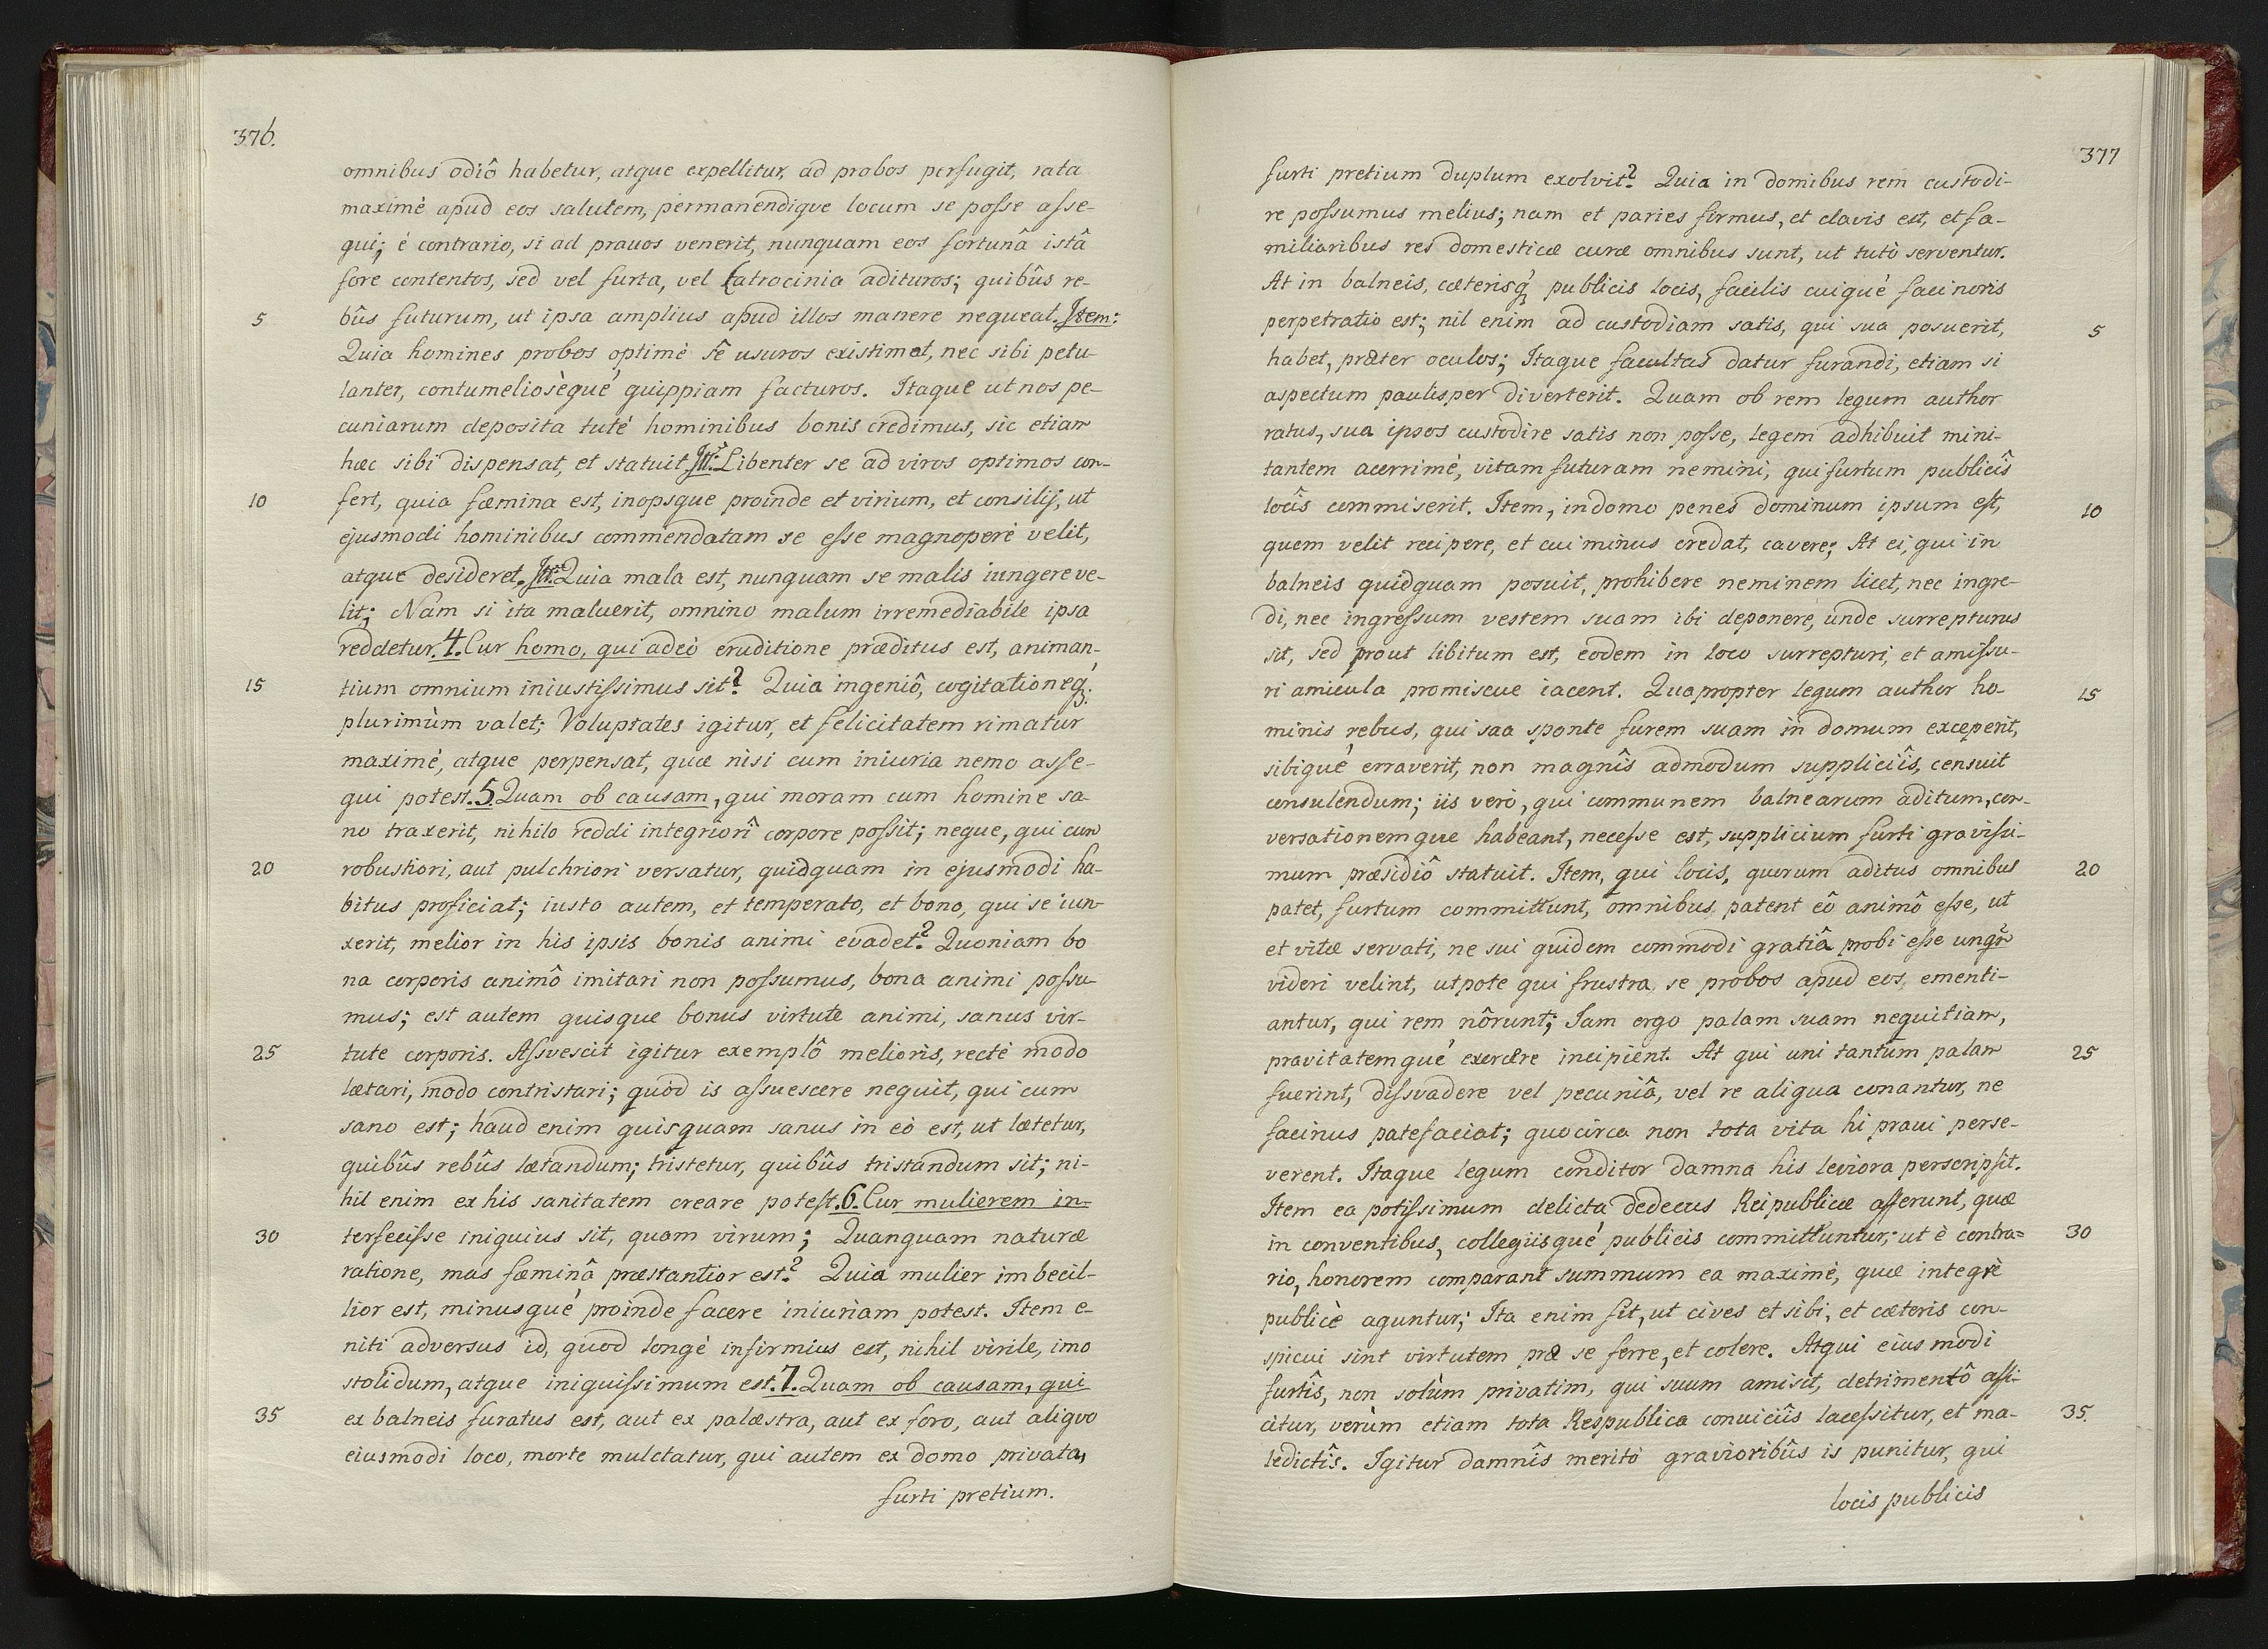 376.
omnibus odiô habetur, atque expellitur, ad probos perfugit, rata
maximè apud eos salutem, permanendique locum se posse asse-
qui; è contrario, si ad prauos venerit, nunquam eos fortunâ istâ
fore contentos, sed vel furta, vel latrocinia adituros; quibûs re-
5 bûs futurum, ut ipsa amplius apud illos manere nequeat. Item:
Quia homines probos optimè sê usuros existimat, nec sibi petu-
lanter, contumeliosèqué quippiam facturos. Itaque ut nos pe-
cuniarum deposita tuté hominibus bonis credimus, sic etiam
hæc sibi dispensat, et statuit, It: Libenter se ad viros optimos con-
10 fert, quia fæmina est, inopsque proinde et virium, et consilij, ut
ejusmodi hominibus commendatam se esse magnoperè velit,
atque desideret. It: Quia mala est, nunquam se malis iungere ve-
lit; Nam si ita maluerit, omnino malum irremediabile ipsa
reddetur. 4. Cur homo, qui adeò eruditione præditus est, animan-
15 tium omnium iniustissimus sit? Quia ingeniô, cogitationeq́;
plurimùm valet; Voluptates igitur, et felicitatem rimatur
maximé, atque perpensat, quæ nisi cum iniuria nemo asse-
qui potest. 5. Quam ob causam, qui moram cum homine sa-
no traxerit, nihilo reddi integriorî corpore possit; neque, qui cum
20 robustiori, aut pulchriori versatur, quidquam in ejusmodi ha-
bitus proficiat; iusto autem, et temperato, et bono, qui se iun-
xerit, melior in his ipsis bonis animi evadet? Quoniam bo
na corporis animô imitari non possumus, bona animi possu-
mus; est autem quisque bonus virtute animi, sanus vir-
25 tute corporis. Assvescit igitur exemplô melioris, rectè modo
lætari, modo contristari; quòd is assuescere nequit, qui cum
sano est; haud enim quisquam sanus in eò est, ut lætetur,
quibûs rebûs lætandum; tristetur, quibûs tristandum sit; ni-
hil enim ex his sanitatem creare potest. 6. Cur mulierem in-
30 terfecisse iniquius sit, quam virum; Quanquam naturæ
ratione, mas fæminâ præstantior est? Quia mulier imbecil-
lior est, minusqué proinde facere iniuriam potest. Item e-
niti adversus id, quod longè infirmius est, nihil virile, imo
stolidum, atque iniquissimum est. 7. Quam ob causam, qui
35 ex balneis furatus est, aut ex palæstra, aut ex foro, aut aliquo
eiusmodi loco, morte mulctatur, qui autem ex domo privata,
furti pretium.
377
furti pretium duplum exolvit? Quia in domibus rem custodi-
re possumus melius; nam et paries firmus, et clavis est, et fa-
miliaribus res domesticæ curæ omnibus sunt, ut tutò serventur.
At in balneis, cæterisq́; publicis locis, facilis cuiqué facinoris
perpetratio est; nil enim ad custodiam satis, qui sua posuerit, 5
habet, præter oculos; Itaque facultas datur furandi, etiam si
aspectum paulisper diverterit. Quam ob rem legum author
ratus, sua ipsos custodire satis non posse, legem adhibuit mini-
tantem acerrimè, vitam futuram nemini, qui furtum publicîs
locîs commiserit. Item, in domo penes dominum ipsum est, 10
quem velit recipere, et cui minus credat, cavere; At ei, qui in
balneis quidquam posuit, prohibere neminem licet, nec ingre-
di, nec ingressum vestem suam ibi deponere, unde surrepturus
sit, sed prout libitum est, eodem in loco surrepturi, et amissu-
ri amicula promiscue iacent. Quapropter legum author ho- 15
minis rebus, qui saa sponte furem suam in domum exceperit,
sibiqué erraverit, non magnîs admodum suppliciîs, censuit
consulendum; iis verò, qui communem balnearum aditum, con-
versationemque habeant, necesse est, supplicium furti gravissi-
mum præsidiô statuit. Item, qui locis, quorum aditus omnibus 20
patet, furtum committunt, omnibus patent eô animô esse, ut
et vitæ servati, ne sui quidem commodi gratiâ probi esse unqr̃
videri velint, utpote qui frustra se probos apud eos ementi-
antur, qui rem nôrunt; Iam ergo palam suam nequitiam,
pravitatemqué exercere incipient. At qui uni tantùm palam 25
fuerint, dissvadere vel pecuniâ, vel re aliqua conantur, ne
facinus patefaciat; quocirca non tota vita hi praui perse-
verent. Itaque legum conditor damna his leviora perscripsit.
Item ea potissimum delicta dedecus Reipublicæ afferunt, quæ
in conventibus, collegiisqué publicis committuntur; ut è contra= 30
rio, honorem comparant summum ea maximè, quæ integrè
publicè aguntur; Ita enim fit, ut cives et sibi, et cæteris con-
spicui sint virtutem præ se ferre, et colere. Atqui eiusmodi
furtîs, non solùm privatim, qui suum amisit, detrimentô affi-
citur, verùm etiam tota Respublica conuiciîs lacessitur, et ma- 35.
ledictîs. Igitur damnîs meritò gravioribûs is punitur, qui
locis publicis